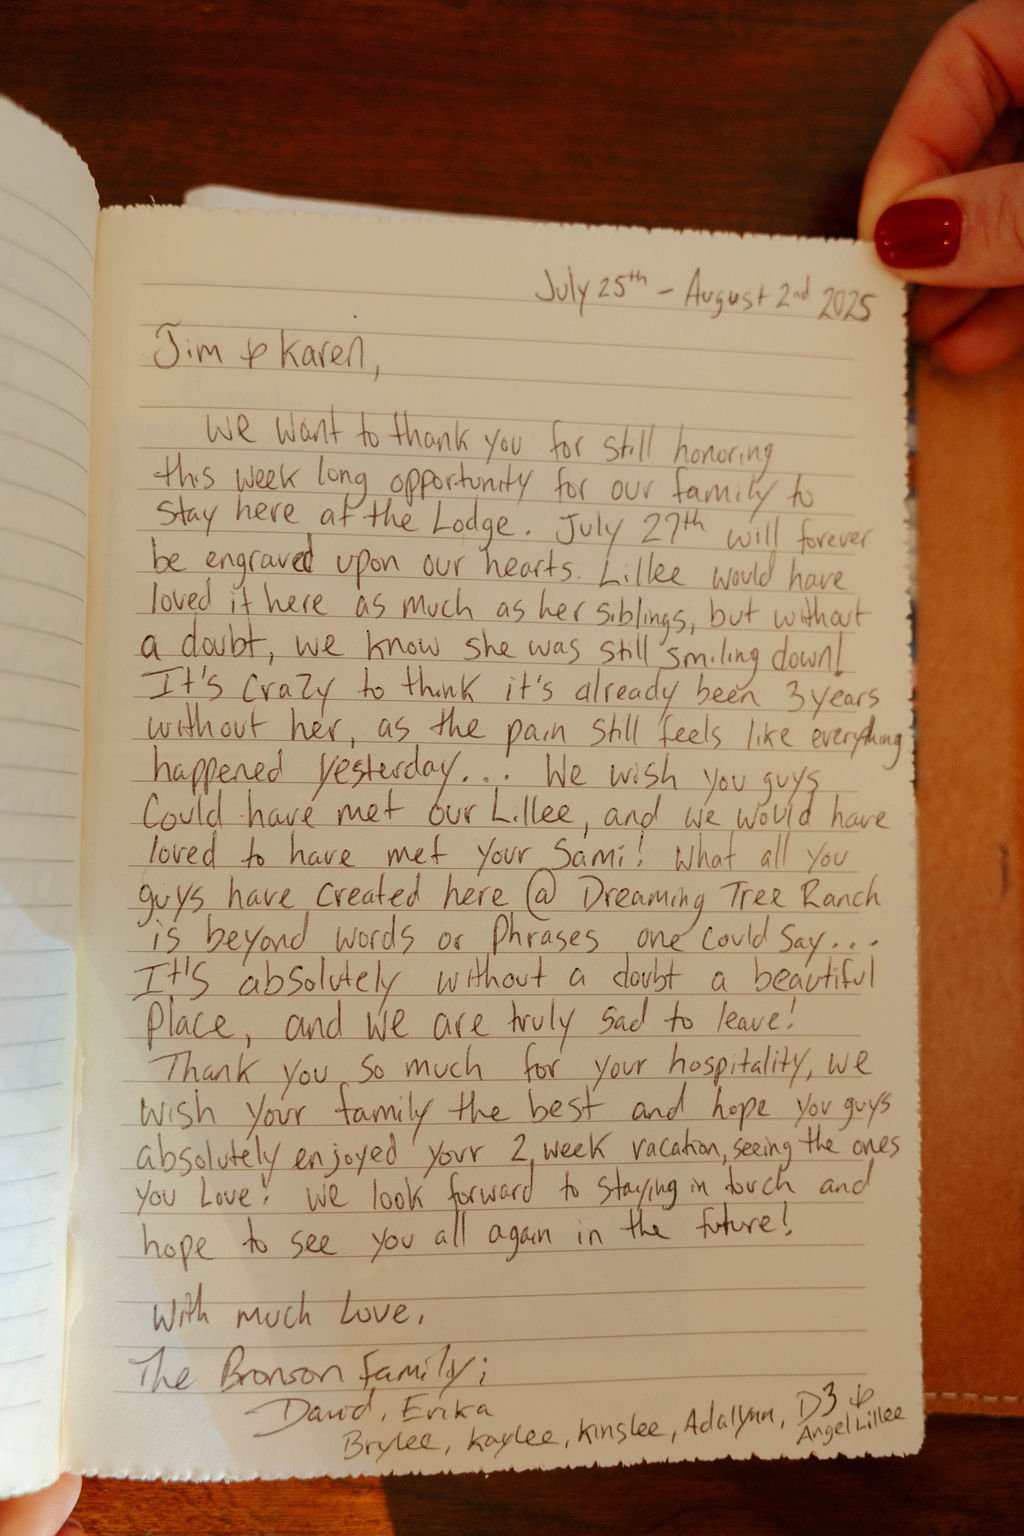 July 25th - August 2nd 2025
Jim & Karen,
We want to thank you for still honoring
this week long opportunity for our family to
stay here at the Lodge. July 27th will forever
be engraved upon our hearts. Lillee would have
loved it here as much as her siblings, but without
a doubt, we know she was still smiling down!
It's crazy to think it's already been 3 years
without her, as the pain still feels like everything
happened yesterday... We wish you guys
could have met our Lillee, and we would have
loved to have met your Sami! What all you
guys have created here @ Dreaming Tree Ranch
is beyond words or phrases one could say...
It's absolutely without a doubt a beautiful
place, and we are truly sad to leave!
Thank you so much for your hospitality, we
wish your family the best and hope you guys
absolutely enjoyed your 2 week vacation, seeing the ones
you love! We look forward to staying in touch and
hope to see you all again in the future!
With much Love,
The Bronson Family;
David, Erika
Brylee, Kaylee, Kinslee, Adalynn, D3 &
Angel Lillee